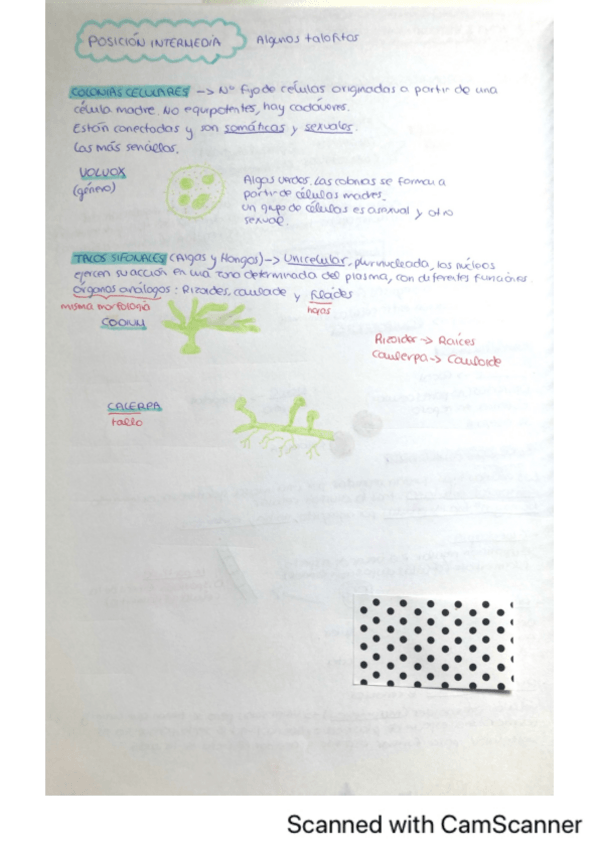 POSICIÓN INTERMEDIA Algunos talofitas
COLONIAS CELULARES -> Nº fijo de células originadas a partir de una
célula madre. No equipotentes, hay cadáveres.
Están conectadas y son somáticas y sexuales.
Las más sencillas.
VOLVOX
(género)
Algas verdes. Las colonias se forman a
partir de células madres.
Un grupo de células es asexual y otro
sexual.
TALOS SIFONALES (Algas y Hongos) -> Unicelular, plurinucleada, los núcleos
ejercen su acción en una zona determinada del plasma, con diferentes funciones
órganos análogos: Rizoides, cauloide y filoides
misma morfología hojas
CODIUM
Rizoides -> Raíces
Caulerpa -> Cauloide
CALERPA
tallo
Scanned with CamScanner